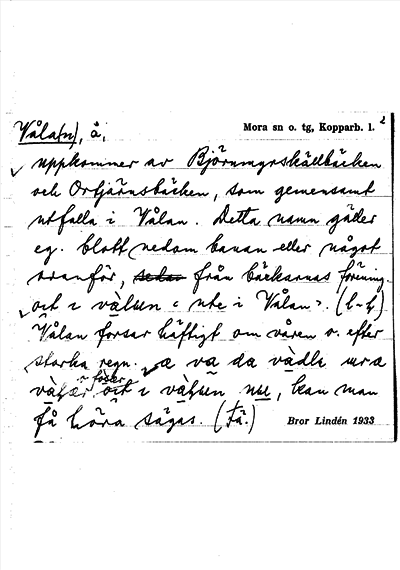 Våla(n), å,
Mora sn o. tg, Kopparb. l. 2
uppkommer av Björnmyrskällbäcken
och Ortjärnsbäcken, som gemensamt
utfalla i Vålan. Detta namn gäller
eg. blott nedom banan eller något
ovanför, från bäckarnas förening.
ʻute i Vålanʼ.
Vålan forsar häftigt om våren o. efter
starka regn.
kan man
få höra sägas.
Bror Lindén 1933